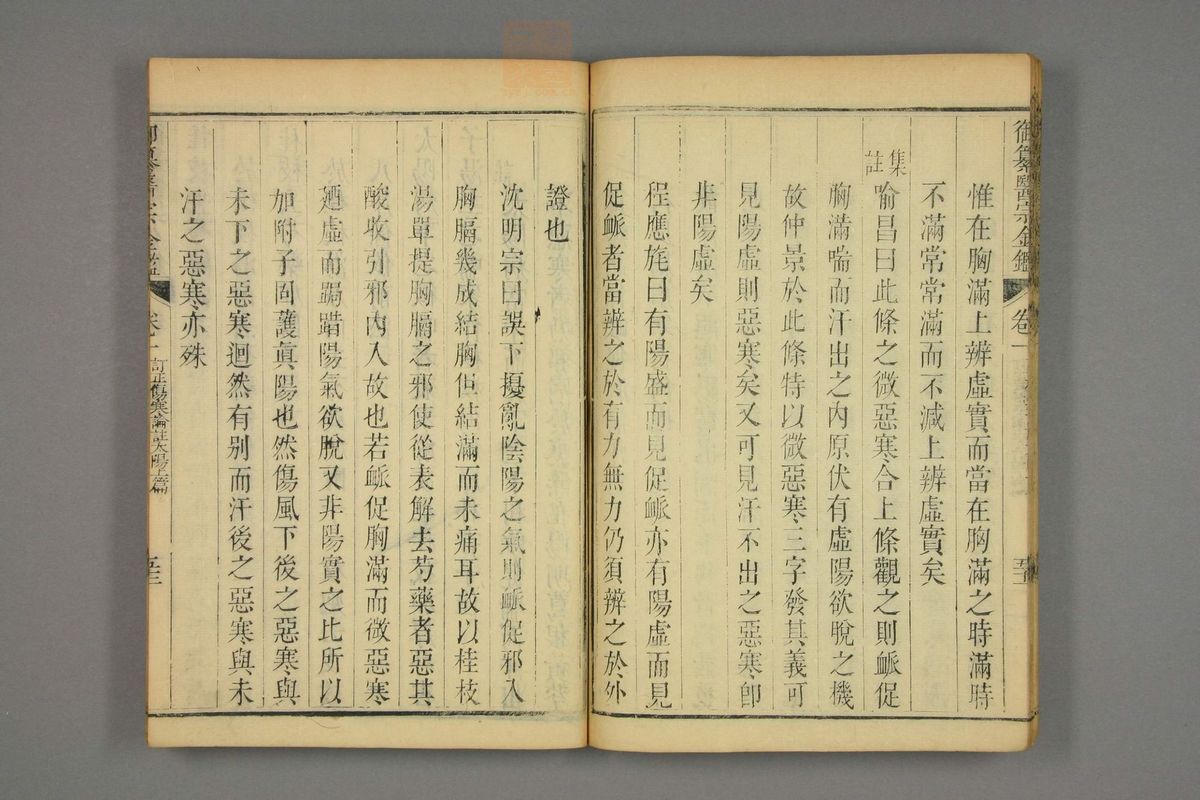 御纂醫宗金鑑 卷一
惟在胸滿上辨虛實而當在胸滿之時滿時
不滿常常滿而不減上辨虛實矣
集註 喻昌曰此條之微惡寒合上條觀之則脈促
胸滿喘而汗出之內原伏有虛陽欲脫之機
故仲景於此條特以微惡寒三字發其義可
見陽虛則惡寒矣又可見汗不出之惡寒卽
非陽虛矣
程應旄曰有陽盛而見促脈亦有陽虛而見
促脈者當辨之於有力無力仍須辨之於外
證也
沈明宗曰誤下擾亂陰陽之氣則脈促邪入
胸膈幾成結胸但結滿而未痛耳故以桂枝
湯單提胸膈之邪使從表解去芍藥者惡其
酸收引邪內入故也若脈促胸滿而微惡寒
廼虛而跼踖陽氣欲脫又非陽實之比所以
加附子固護眞陽也然傷風下後之惡寒與
未下之惡寒迥然有别而汗後之惡寒與未
汗之惡寒亦殊
御纂醫宗金鑑 卷一 訂正傷寒論註太陽上篇 五三